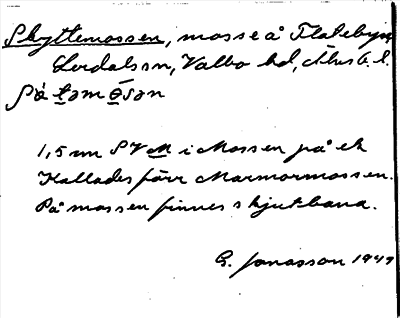 Skyttemossen, mosse å Flatebyn
Lerdals sn, Valbo hd, Älvsb. l.
på t̲əm ə̲́sən
1,5 mm SV M i Mossen på ek
Kallades förr Marmormossen.
På mossen finnes skjutbana.
G. Jonasson 1947